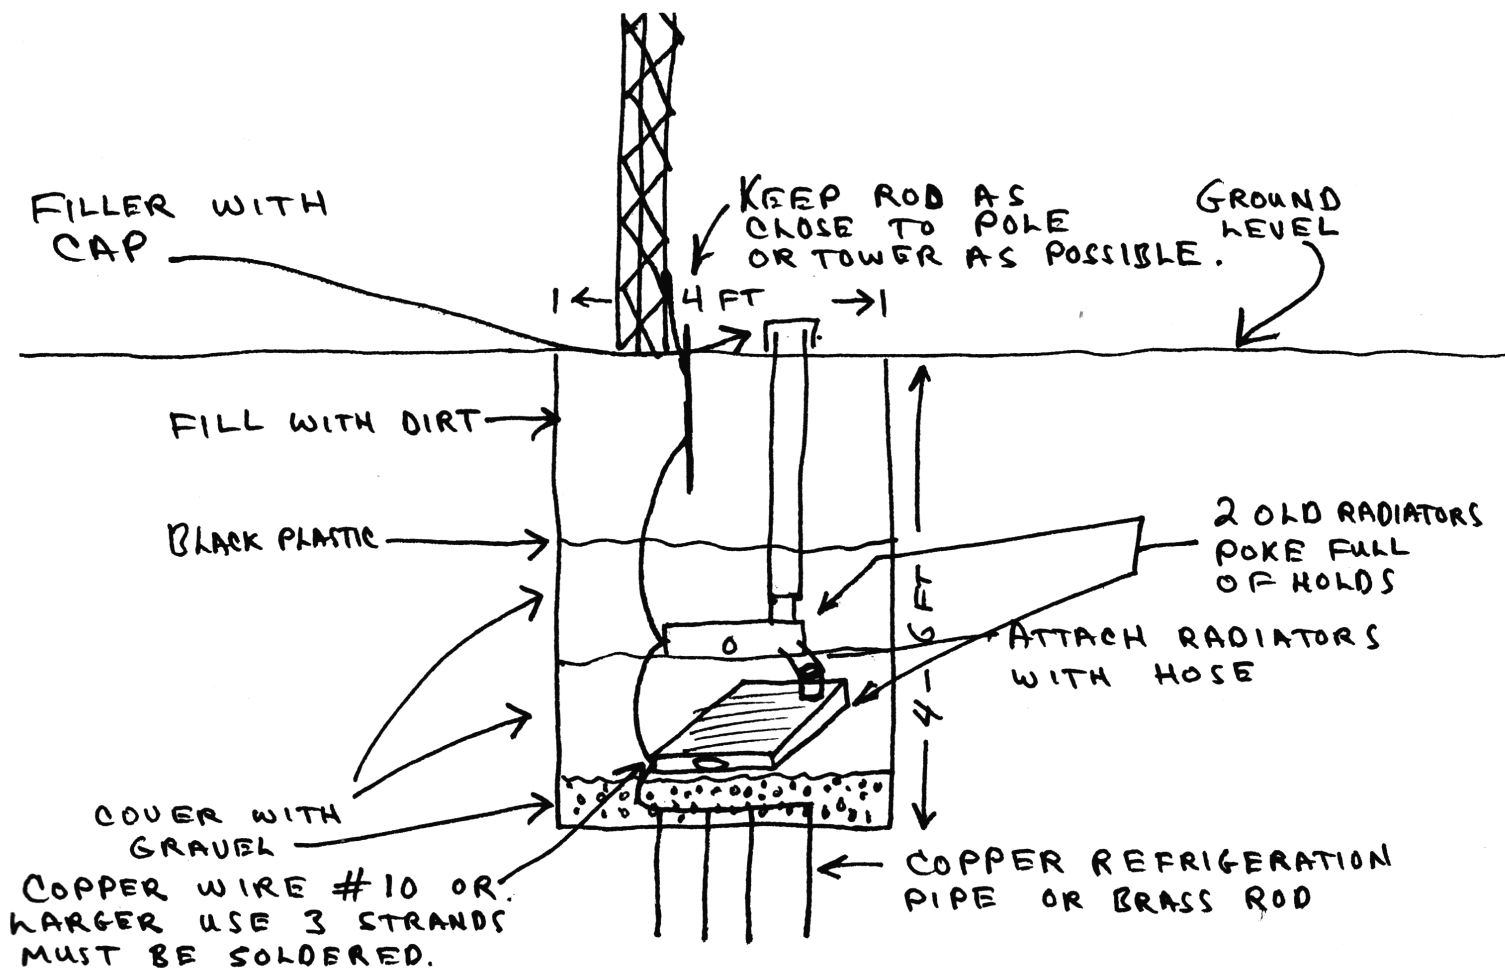 FILLER WITH
CAP
KEEP ROD AS
CLOSE TO POLE
OR TOWER AS POSSIBLE.
GROUND
LEVEL
4 FT
FILL WITH DIRT
BLACK PLASTIC
2 OLD RADIATORS
POKE FULL
OF HOLDS
4-6 FT
ATTACH RADIATORS
WITH HOSE
COVER WITH
GRAVEL
COPPER WIRE #10 OR
LARGER USE 3 STRANDS
MUST BE SOLDERED.
COPPER REFRIGERATION
PIPE OR BRASS ROD